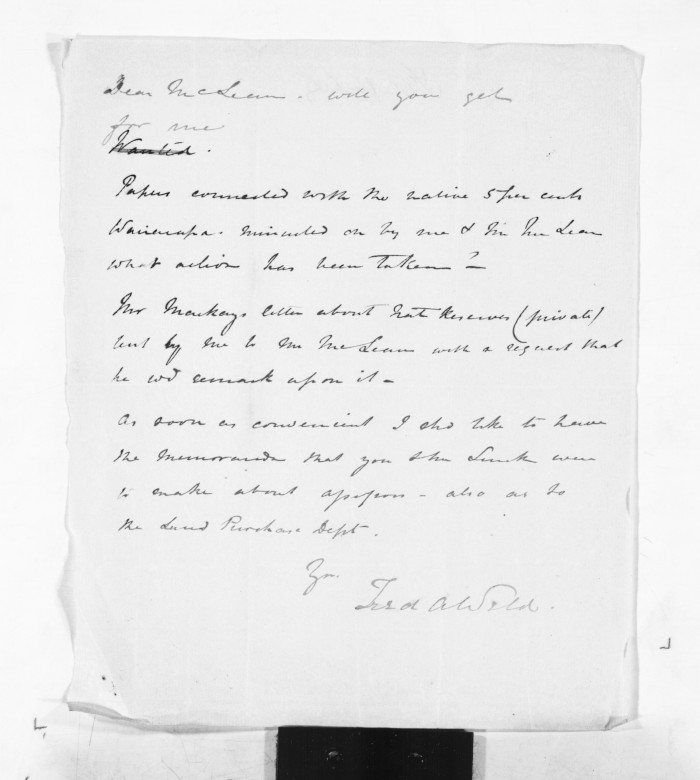 Dear McLean - will you get
for me
Wanted.
Papers connected with the native 5 per cents
Wairarapa. minuted on by me & Mr McLean
what action has been taken? -
Mr Mackays letter about Nat Reserves (private)
lent by me to Mr McLean with a request that
he wd remark upon it -
As soon as convenient I shd like to have
the memoranda that you & Mr were
to make about assessors - also as to
the Land Purchase Dept.
Yrs
Fred A Weld.